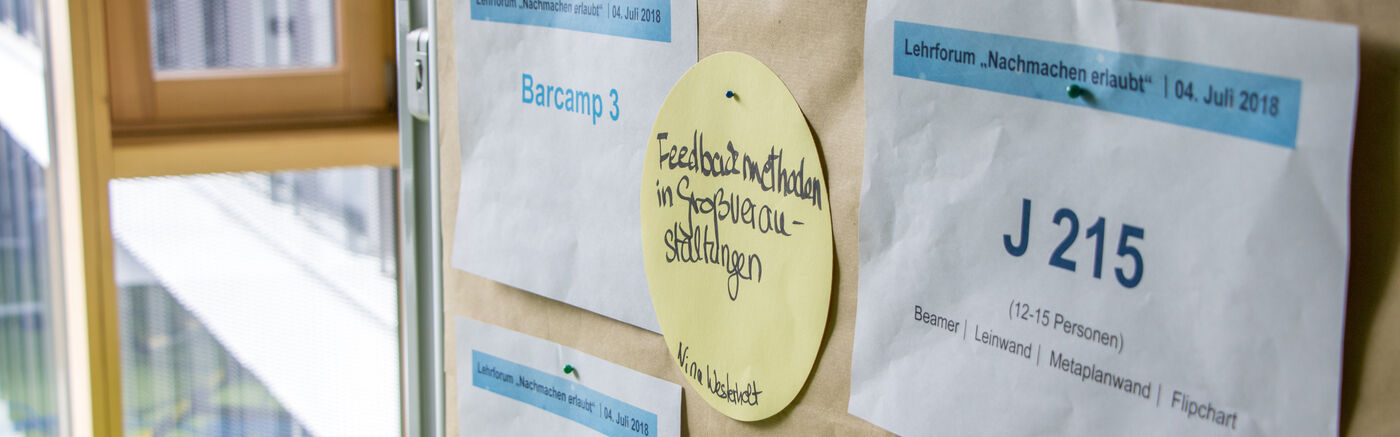 Lehrforum „Nachmachen erlaubt“ | 04. Juli 2018
Barcamp 3
Feedbackmethoden
in Großveran-
staltungen
Nina Westerholt
Lehrforum „Nachmachen erlaubt“ | 04. Juli 2018
Lehrforum „Nachmachen erlaubt“ | 04. Juli 2018
J 215
(12-15 Personen)
Beamer | Leinwand | Metaplanwand | Flipchart